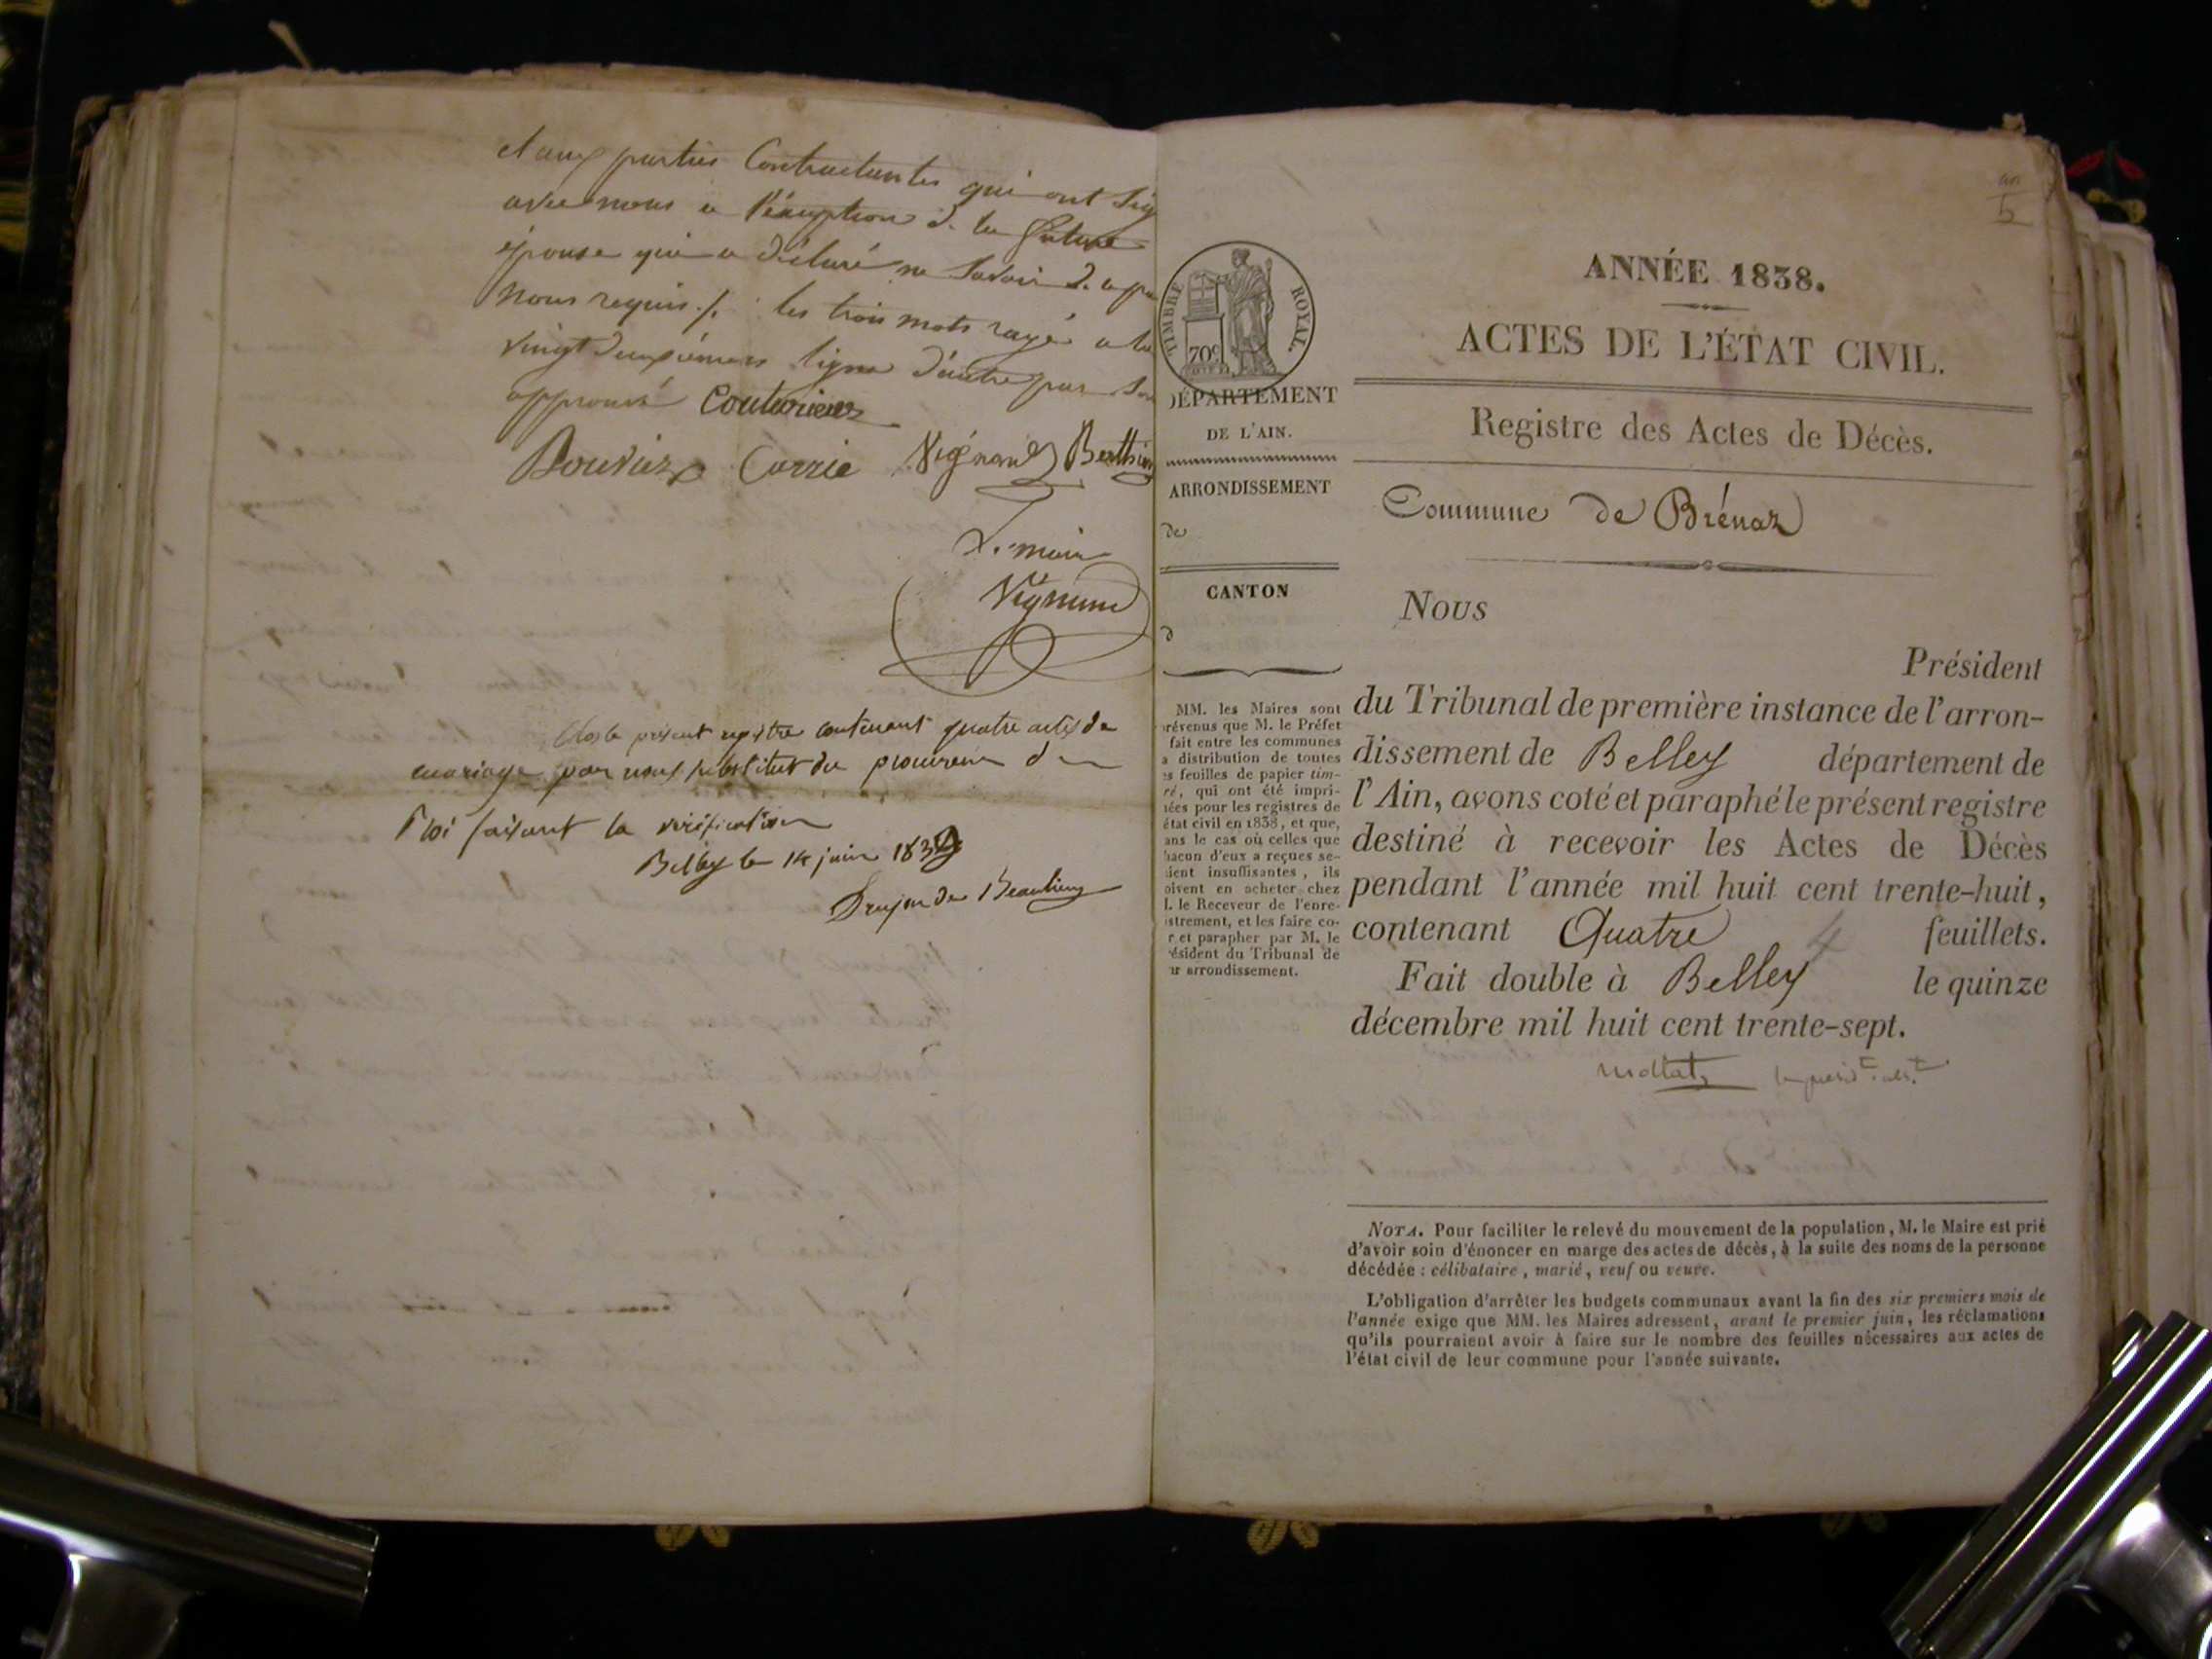 et aux parties Contractantes qui ont sig
avec nous a l'éxception de la future
épouse qui a déclaré ne savoir de a par
nous requis ./. les trois mots rayé a la
vingt deuxièmes ligne d'autre par son
approuvé Couturier
Bouvier Carrie Vignand Berthier
Le maire
Vignand
Clos le présent registre contenant quatre actes de
mariage par nous substitut du procureur du
Roi faisant la vérification
Belley le 14 juin 1839
Drujon de Beaulieu
an
5
TIMBRE ROYAL.
70c
DÉPARTEMENT
DE L'AIN.
ARRONDISSEMENT
de
CANTON
d
MM. les Maires sont
révenus que M. le Préfet
fait entre les communes
a distribution de toutes
es feuilles de papier tim-
ré, qui ont été impri-
ées pour les registres de
état civil en 1838, et que,
ans le cas où celles que
hacun d'eux a reçues se-
aient insuffisantes, ils
oivent en acheter chez
l. le Receveur de l'enre-
istrement, et les faire co-
r et parapher par M. le
ésident du Tribunal de
ur arrondissement.
ANNÉE 1838.
ACTES DE L'ÉTAT CIVIL.
Registre des Actes de Décès.
Commune de Brénaz
Nous
Président
du Tribunal de première instance de l'arron-
dissement de Belley département de
l'Ain, avons coté et paraphé le présent registre
destiné à recevoir les Actes de Décès
pendant l'année mil huit cent trente-huit,
contenant Quatre 4 feuillets.
Fait double à Belley le quinze
décembre mil huit cent trente-sept.
NOTA. Pour faciliter le relevé du mouvement de la population, M. le Maire est prié
d'avoir soin d'énoncer en marge des actes de décès, à la suite des noms de la personne
décédée : célibataire, marié, veuf ou veuve.
L'obligation d'arrêter les budgets communaux avant la fin des six premiers mois de
l'année exige que MM. les Maires adressent, avant le premier juin, les réclamations
qu'ils pourraient avoir à faire sur le nombre des feuilles nécessaires aux actes de
l'état civil de leur commune pour l'année suivante.